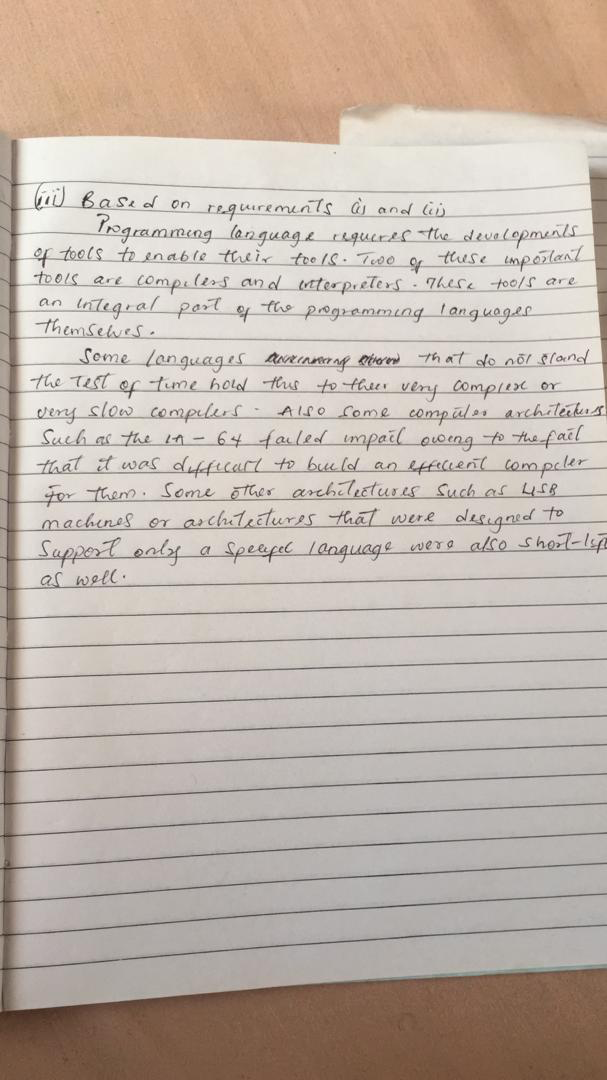 (iii) Based on requirements (i) and (ii)
Programming language requires the developments
of tools to enable their tools. Two of these important
tools are compilers and interpreters. These tools are
an integral part of the programming languages
themselves.
Some languages that do not stand
the Test of time hold this to their very complex or
very slow compilers. Also some computer architectures
Such as the IA-64 failed impact owing to the fact
that it was difficult to build an efficient compiler
for them. Some other architectures such as LISB
machines or architectures that were designed to
Support only a language were also short-
as well.